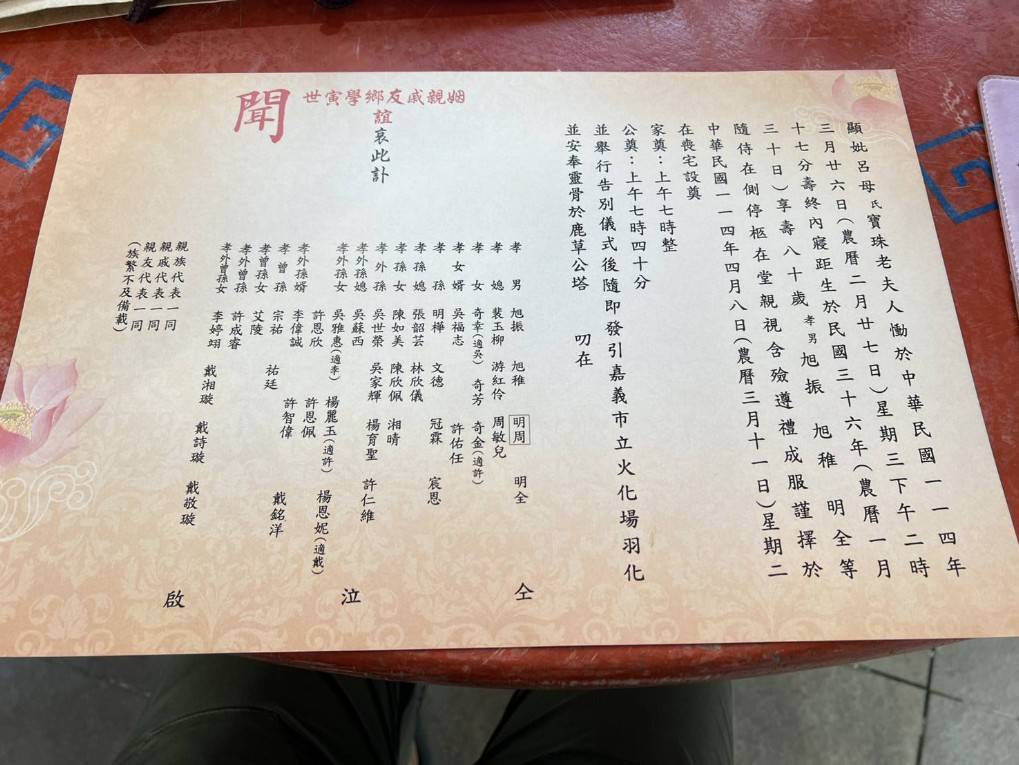 顯妣呂母氏寶珠老夫人慟於中華民國一一四年
三月廿六日(農曆二月廿七日)星期三下午二時
十七分壽終內寢距生於民國三十六年(農曆一月
三十日)享壽八十歲孝男旭振 旭稚 明全等
隨侍在側停柩在堂親視含殮遵禮成服謹擇於
中華民國一一四年四月八日(農曆三月十一日)星期二
在喪宅設奠
家奠：上午七時整
公奠：上午七時四十分
並舉行告別儀式後隨即發引嘉義市立火化場羽化
並安奉靈骨於鹿草公塔 叨在
姻親戚友鄉學寅世
誼
哀此訃
聞
孝男 旭振 旭稚 明周 明全
孝媳 裴玉柳 游紅伶 周敏兒
孝女 奇幸(適吳) 奇芳 奇金(適許)
孝女婿 吳福志 許佑任
孝孫 明樺 文德 冠霖 宸恩
孝孫媳 張韶芸 林欣儀
孝孫女 陳如美 陳欣佩 湘晴
孝外孫 吳世榮 吳家輝 楊育聖 許仁維
孝外孫媳 吳蘇西
孝外孫女 吳雅惠(適李) 楊麗玉(適許) 楊恩妮(適戴)
許恩欣 許恩佩
孝外孫婿 李偉誠 許智偉 戴銘洋
孝曾孫 宗祐 祐廷
孝曾孫女 艾陵
孝外曾孫 許成睿
孝外曾孫女 李婷翊 戴湘璇 戴詩璇 戴敬璇
親族代表一同
親戚代表一同
親友代表一同
(族繁不及備載)
仝
泣
啟